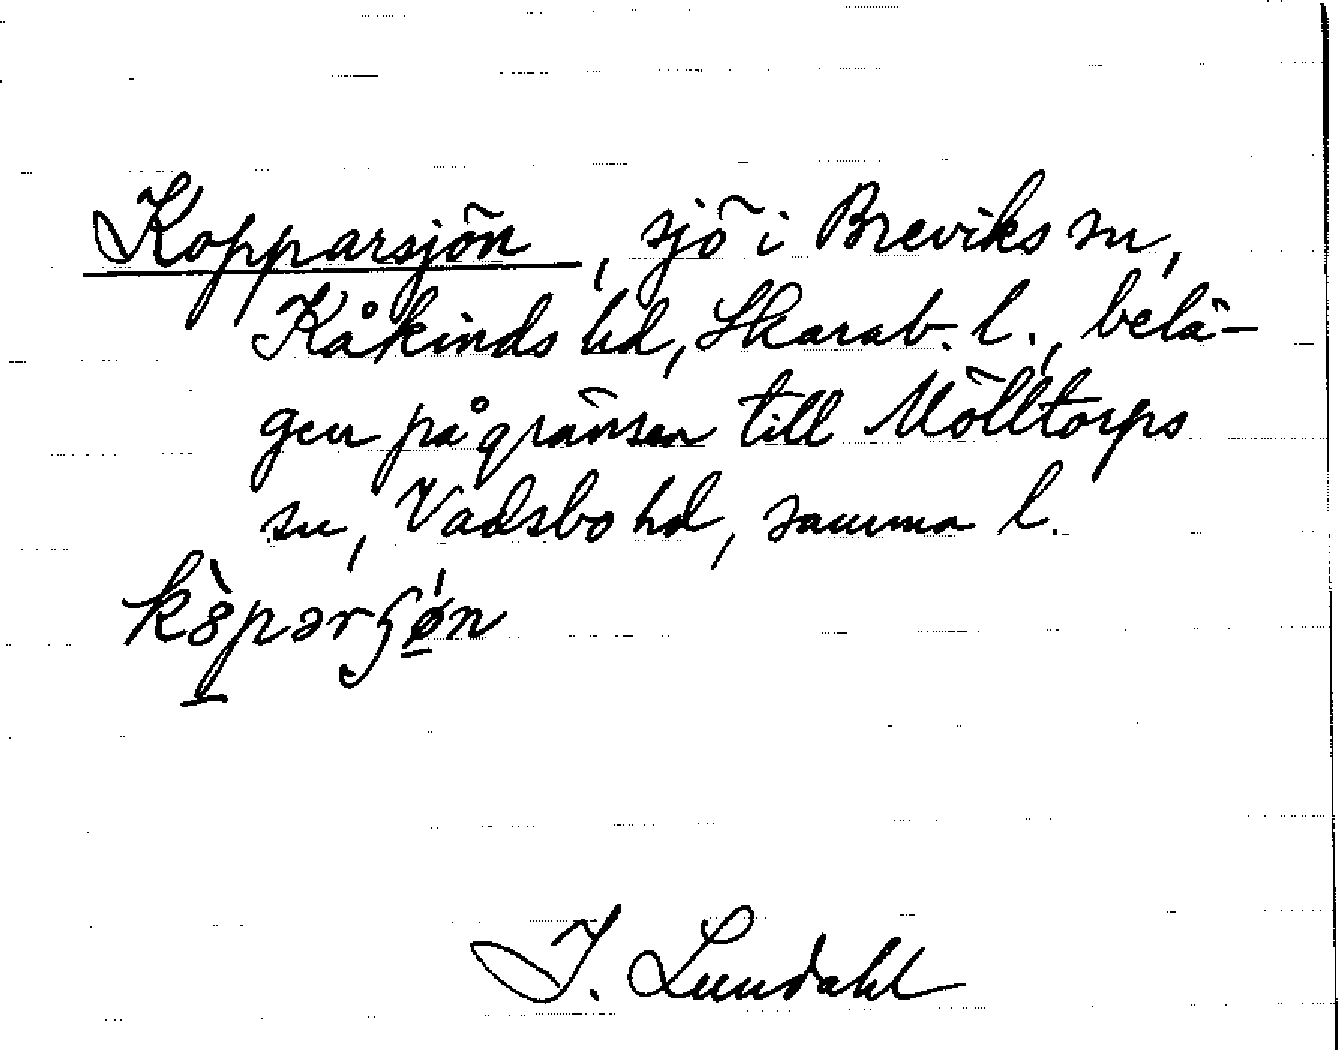 Kopparsjön, sjö i Breviks sn,
Kåkinds hd, Skarab. l., belä-
gen på gränsen till Mölltorps
sn, Vadsbo hd, samma l.
I. Lundahl